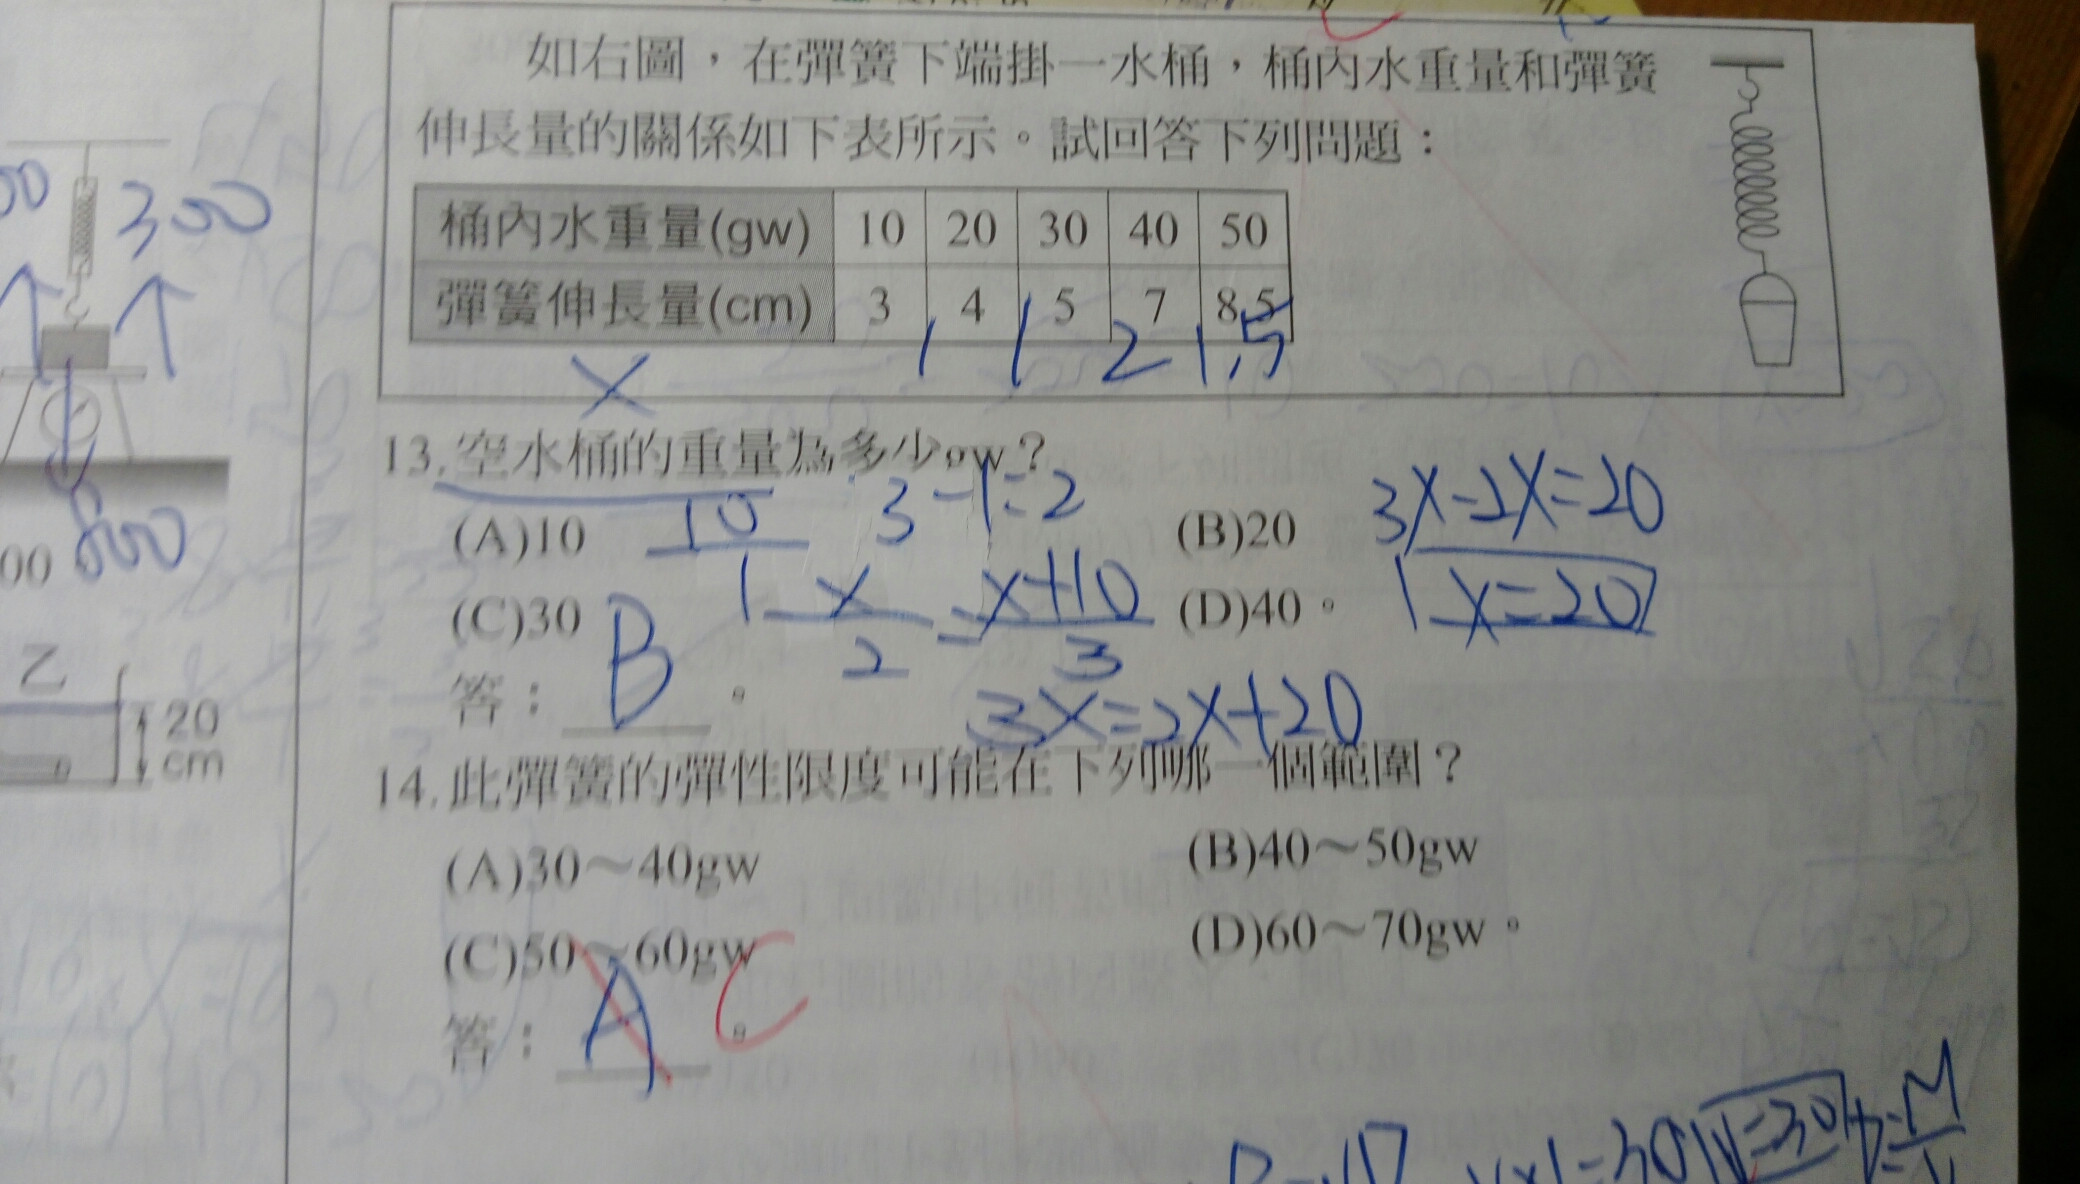 如右圖，在彈簧下端掛一水桶，桶內水重量和彈簧
伸長量的關係如下表所示。試回答下列問題：
桶內水重量(gw) 10 20 30 40 50
彈簧伸長量(cm) 3 4 5 7 8.5
x 1 1 2 1.5
13.空水桶的重量為多少gw？
(A)10 (B)20
(C)30 (D)40。
10
1
3-1=2
x/2=x+10/3
3x=2x+20
3x-2x=20
x=20
答：B。
14.此彈簧的彈性限度可能在下列哪一個範圍？
(A)30～40gw (B)40～50gw
(C)50～60gw (D)60～70gw。
答：A。C
300
00
乙
20
cm